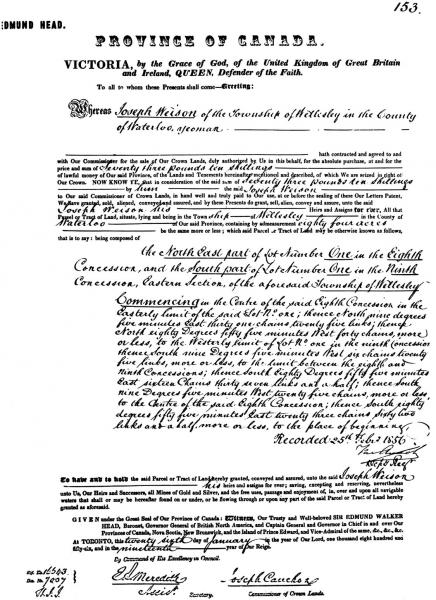 153.
EDMUND HEAD.
PROVINCE OF CANADA.
VICTORIA, by the Grace of God, of the United Kingdom of Great Britain
and Ireland, QUEEN, Defender of the Faith.
To all to whom these Presents shall come—Greeting:
Whereas Joseph Weison of the Township of Willesley in the County
of Waterloo, yeoman
hath contracted and agreed to and
with Our Commissioner for the sale of Our Crown Lands, duly authorized by Us in this behalf, for the absolute purchase, at and for the
price and sum of Seventy three pounds ten shillings
of lawful money of Our said Province, of the Lands and Tenements hereinafter mentioned and described, of which We are seized in right of
Our Crown. NOW KNOW YE, that in consideration of the said sum of Seventy three pounds ten shillings
by him the said Joseph Weison
to Our said Commissioner of Crown Lands, in hand well and truly paid to Our use, at or before the sealing of these Our Letters Patent,
We have granted, sold, aliened, conveyed and assured, and by these Presents do grant, sell, alien, convey and assure, unto the said
Joseph Weison his Heirs and Assigns for ever, All that
Parcel or Tract of Land, situate, lying and being in the Town ship of Willesley in the County of
Waterloo of Our said Province, containing by admeasurement eighty four acres
be the same more or less; which said Parcel or Tract of Land may be otherwise known as follows,
that is to say: being composed of
the North East part of Lot Number One in the Eighth
Concession, and the South part of Lot Number One in the Ninth
Concession, Eastern Section, of the aforesaid Township of Willesley
Commencing in the Centre of the said Eighth Concession in the
Easterly limit of the said Lot No. one; thence North nine degrees
five minutes East thirty one chains, twenty five links; thence
North eighty Degrees fifty five minutes West forty chains, more
or less, to the Westerly limit of Lot No. one in the ninth Concession
thence South nine Degrees five minutes West six chains twenty
five links, more or less, to the limit between the eighth and
ninth Concessions; thence South Eighty Degrees fifty five minutes
East sixteen Chains thirty seven links and a half; thence South
nine Degrees five minutes West twenty five chains, more or less,
to the Centre of the said Eighth Concession; thence South eighty
degrees fifty five minutes East twenty three chains sixty two
links and a half, more or less, to the place of beginning
Recorded 25th Feb. 1856
To have and to hold the said Parcel or Tract of Land hereby granted, conveyed and assured, unto the said Joseph Weison
his heirs and assigns for ever; saving, excepting and reserving, nevertheless
unto Us, Our Heirs and Successors, all Mines of Gold and Silver, and the free uses, passage and enjoyment of, in, over and upon all navigable
waters that shall or may be hereafter found on or under, or be flowing through or upon any part of the said Parcel or Tract of Land hereby
granted as aforesaid.
GIVEN under the Great Seal of Our Province of Canada: Witness, Our Trusty and Well-beloved SIR EDMUND WALKER
HEAD, Baronet, Governor General of British North America, and Captain General and Governor in Chief in and over
Our Provinces of Canada, Nova Scotia, New Brunswick, and the Island of Prince Edward, and Vice-Admiral of the same, &c., &c., &c.
At TORONTO, this twenty sixth day of January in the year of Our Lord, one thousand eight hundred
and fifty-six, and in the nineteenth year of Our Reign.
By Command of His Excellency in Council.
E. A. Meredith
Secretary.
Joseph Cauchon
Commissioner of Crown Lands.